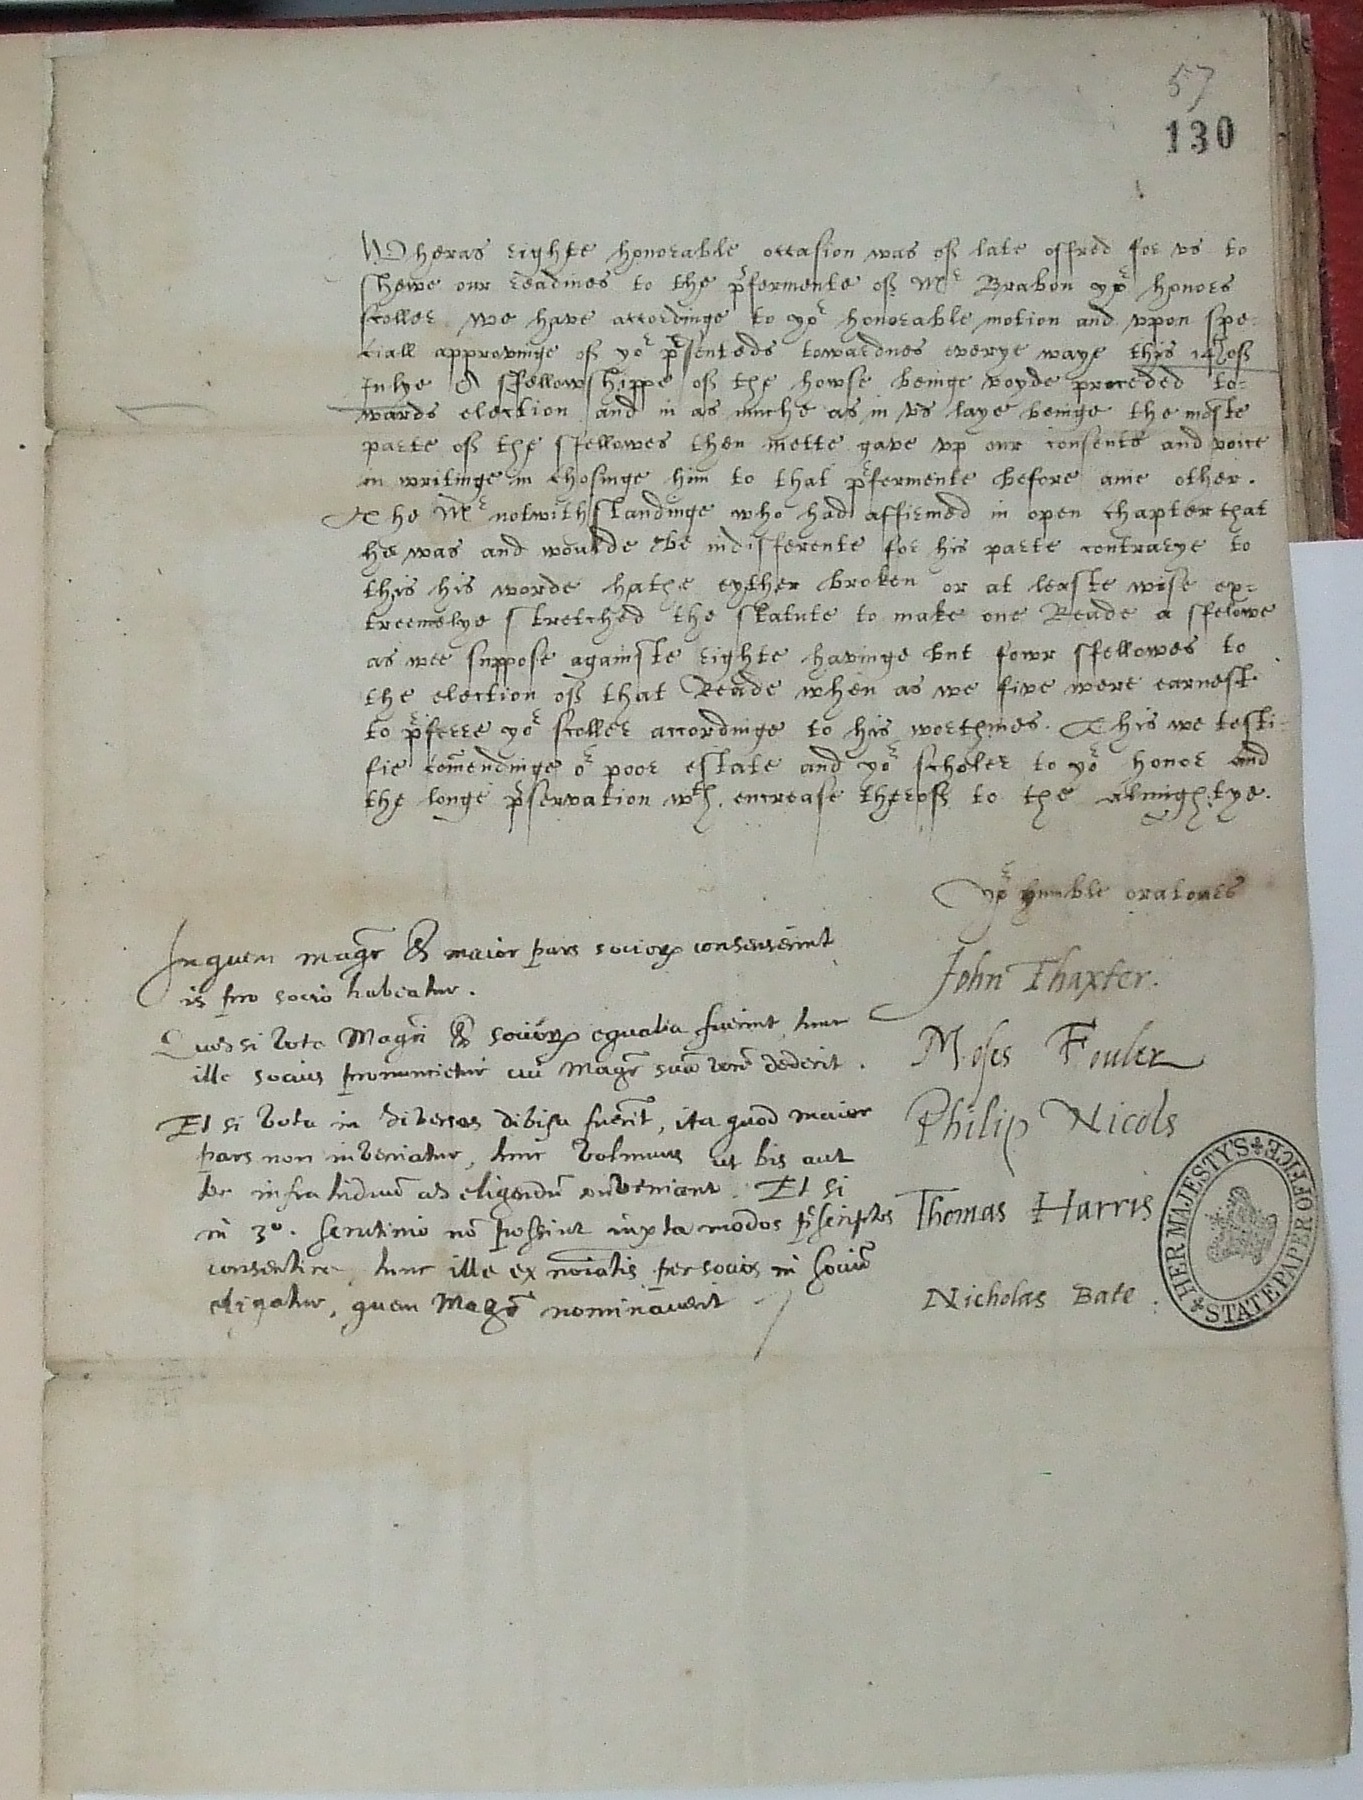 57
130
Wheras righte honorable occasion was off late offred for vs to
shewe our readines to the pʳfermente off Mʳ Brabon yoʳ honors
scoller we have accordinge to yoʳ honorable motion and vpon spe-
ciall approvinge off yoʳ pʳsenteds towardnes everye waye this 14th off
Julye A ffellowshippe off the howse beinge voyde proceded to-
wards election and in as muche as in vs laye beinge the moste
parte off the ffellowes then mette gave vp our consents and voice
in writinge in chosinge him to that pʳfermente before anie other.
The Mʳ notwithstandinge who had affirmed in open chapter that
he was and woulde be indifferente for his parte contrarye to
this his worde hathe eyther broken or at leaste wise ex-
treemelye stretched the statute to make one Reade a ffelowe
as wee suppose againste righte havinge but fowr ffellowes to
the election off that Reade when as we five were earnest
to pʳferre yoʳ scoller accordinge to his worthines. This we testi-
fie com̄endinge oʳ poor estate and yoʳ scholer to yoʳ honor and
the longe pʳservation wth encrease theroff to the almightye.
yoʳ humble oratours
In quem magr̄ & maior pars socioꝝ consenserint
is pro socio habeatur.
Quod si vota Magr̄i & socioꝝ equalia fuerint tunc
ille socius pronuncietur cui Magr̄ suū votū dederit.
Et si vota in diversos divisa fuerīt, ita quod maior
pars non inveniatur, tunc volumus ut bis aut
ter infra triduū ad eligendū conveniant. Et si
in 3º. scrutinio nō possint iuxta modos pʳscriptos
consentire, tunc ille ex noīatis per socios in sociū
eligatur, quem Magr̄ nominaverit
John Thaxter.
Moses Fouler
Philip Nicols
Thomas Harris
Nicholas Bate
HER MAJESTY'S STATE PAPER OFFICE